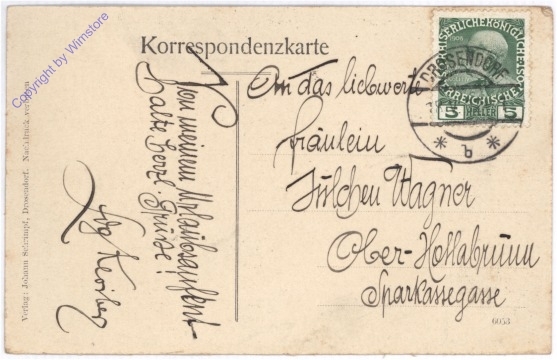 Korrespondenzkarte
Von meinem Urlaubsaufent-
halte herzl. Grüße!
An das liebwerte
Fräulein
Julchen Wagner
Ober-Hollabrunn
Sparkassegasse
KAISERLICHE KÖNIGLICHE
1908
5 HELLER 5
DROSENDORF
* b *
Verlag: Johann Schrampf, Drosendorf. Nachdruck verboten
6053
Copyright by Wimstore